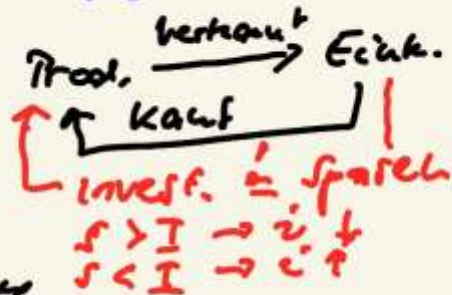 Prod. verkauft → Eink.
Kauf
invest. ≙ Sparen
S > I → i ↓
S < I → i ↑